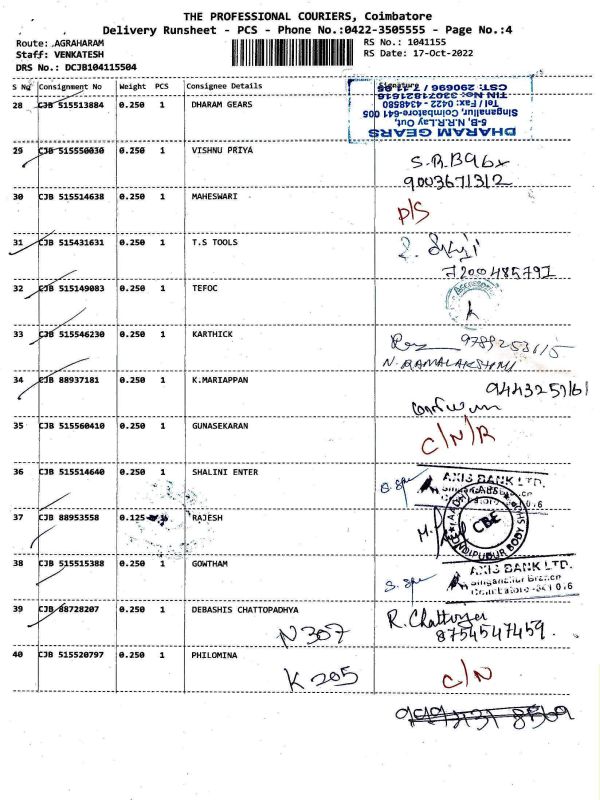 THE PROFESSIONAL COURIERS, Coimbatore
Delivery Runsheet - PCS - Phone No.:0422-3505555 - Page No.:4
Route: AGRAHARAM RS No.: 1041155
Staff: VENKATESH RS Date: 17-Oct-2022
DRS No.: DCJB104115504
S No Consignment No Weight PCS Consignee Details Signature
28 CJB 515513884 0.250 1 DHARAM GEARS
DHARAM GEARS
5-B, N.R.R.Lay Out,
Singanallur, Coimbatore-641 005
Tel / Fax: 0422 - 4348580
29 CJB 515550030 0.250 1 VISHNU PRIYA
9003671312
30 CJB 515514638 0.250 1 MAHESWARI P/S
31 CJB 515431631 0.250 1 T.S TOOLS
7200485791
32 CJB 515149083 0.250 1 TEFOC
33 CJB 515546230 0.250 1 KARTHICK
N. RAMALAKSHMI
34 CJB 88937181 0.250 1 K.MARIAPPAN
35 CJB 515560410 0.250 1 GUNASEKARAN C/N/R
36 CJB 515514640 0.250 1 SHALINI ENTER
AXIS BANK LTD.
Singanallur Branch
37 CJB 88953558 0.125 RAJESH
CBE
38 CJB 515515388 0.250 1 GOWTHAM
AXIS BANK LTD.
Singanallur Branch
39 CJB 88728207 0.250 1 DEBASHIS CHATTOPADHYA
N 307 8754547459.
40 CJB 515520797 0.250 1 PHILOMINA
K 205 C/N